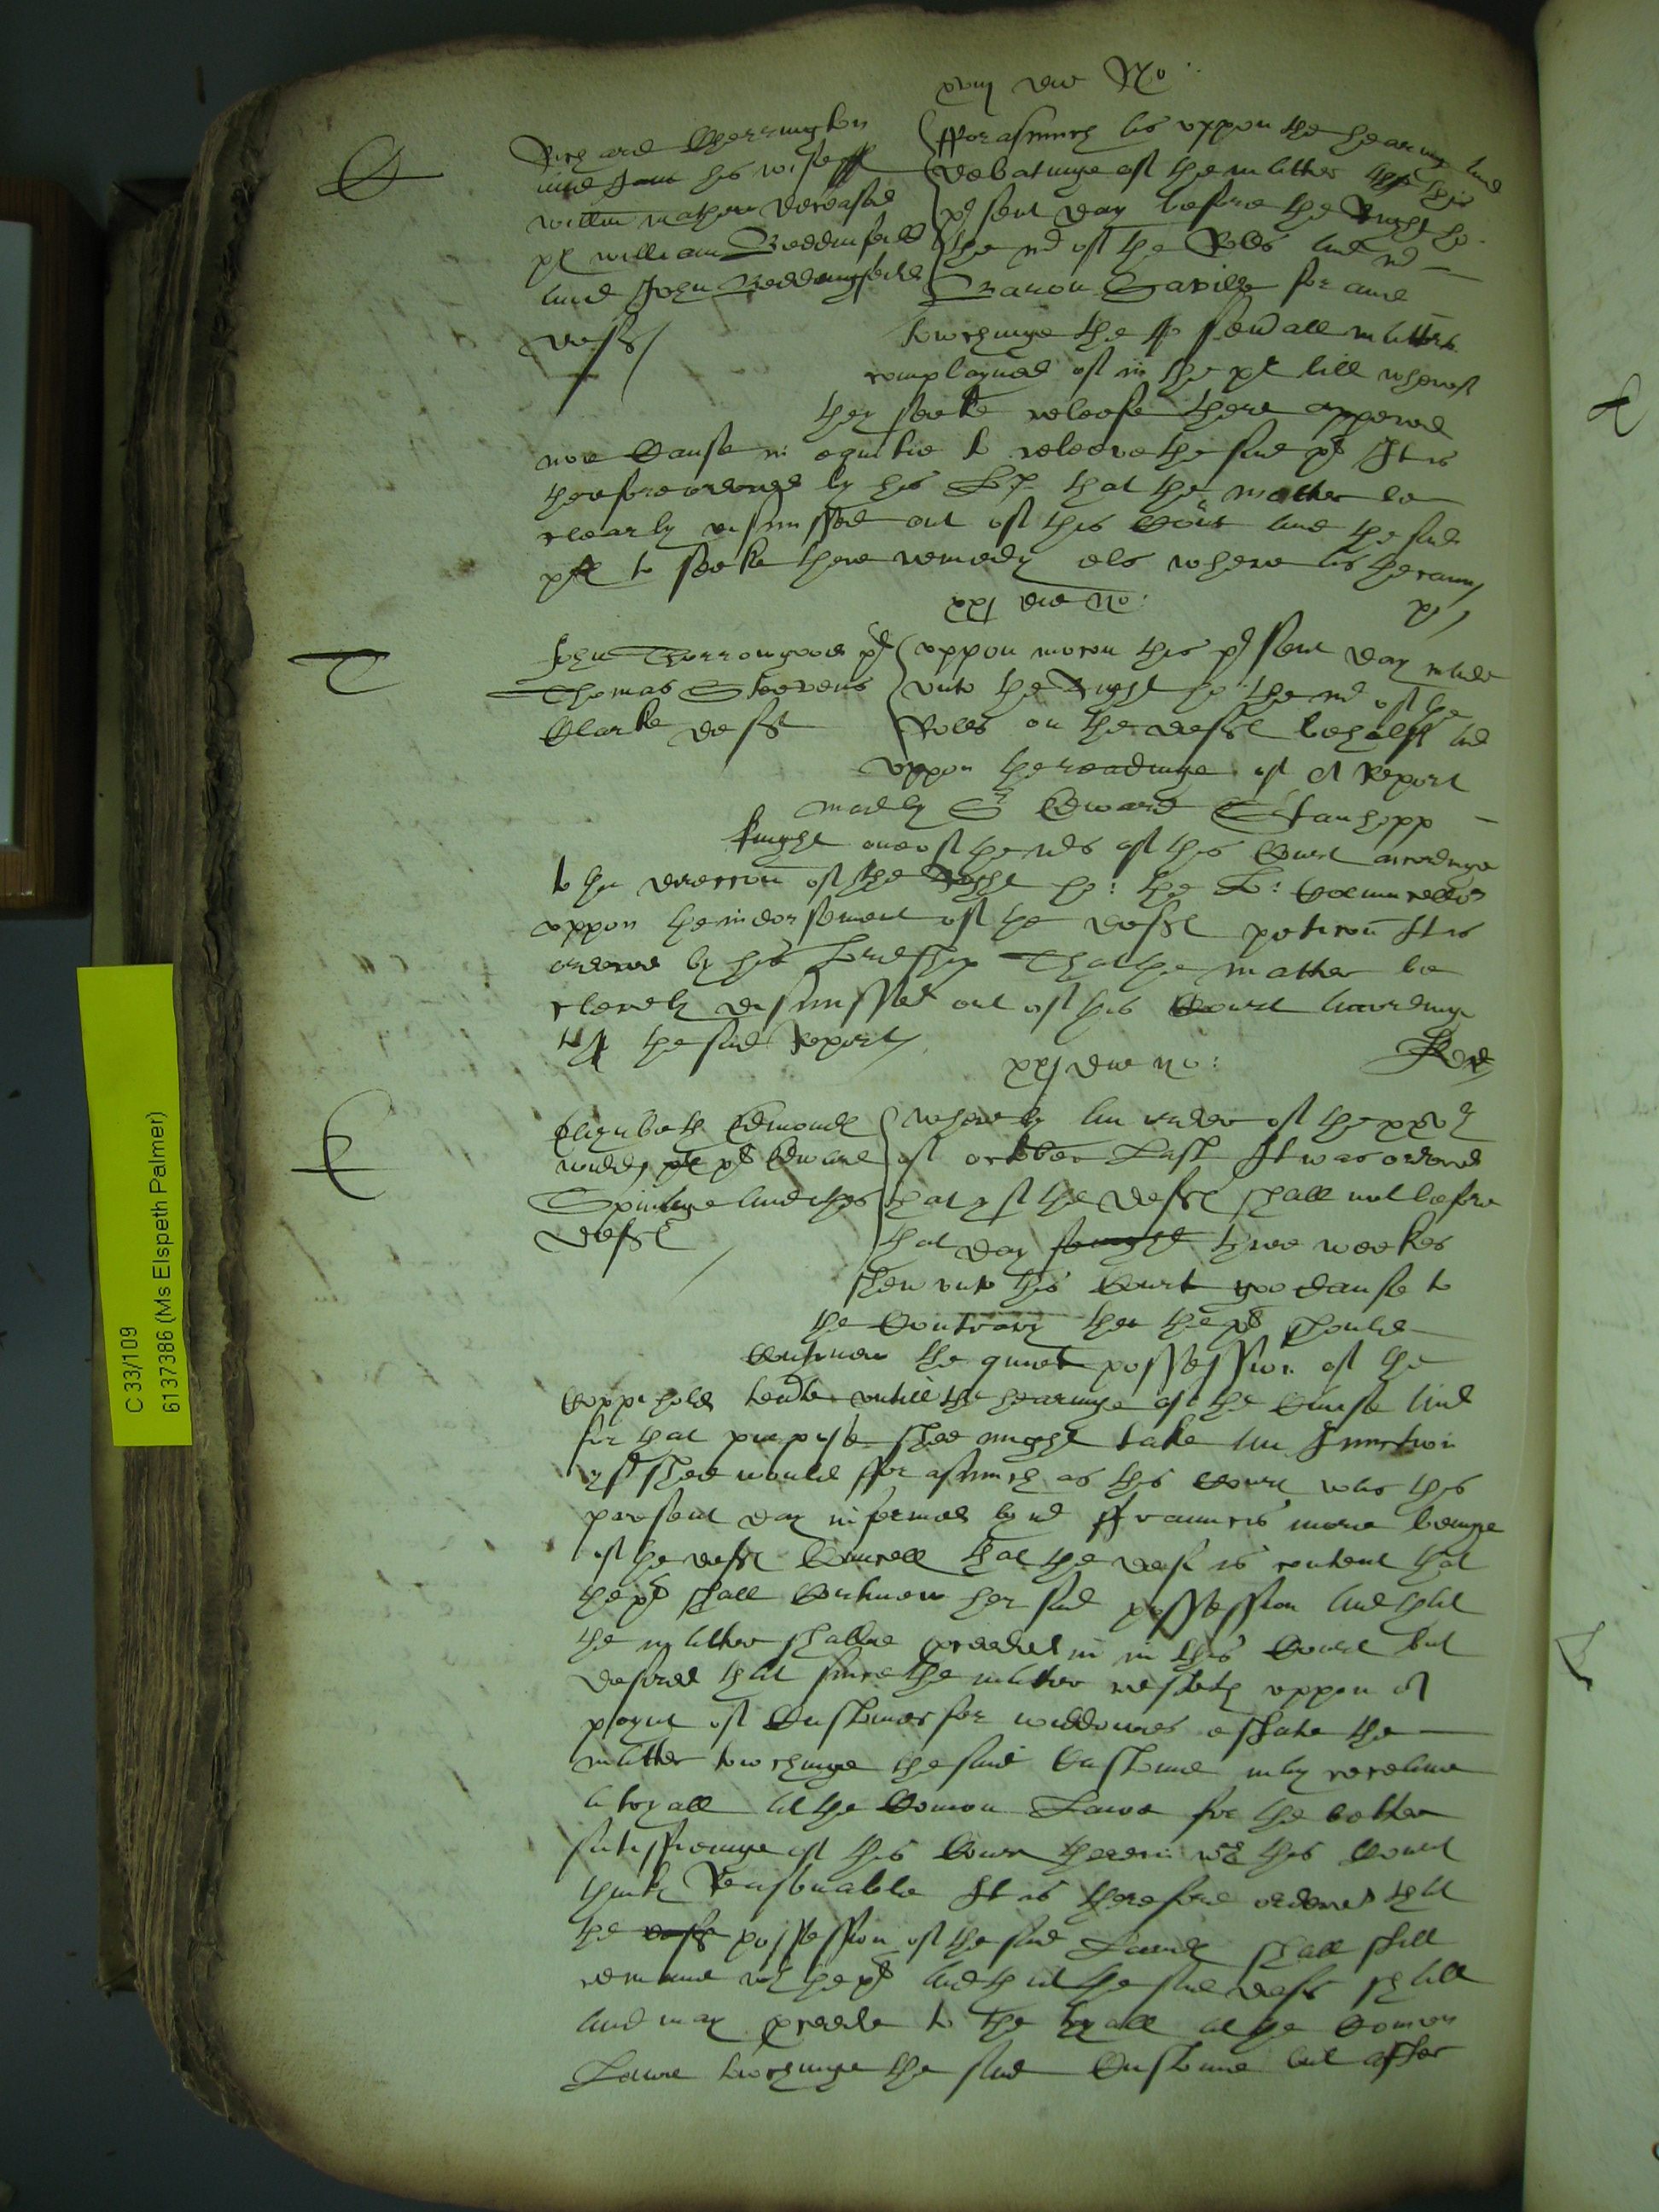 xviij die No:
Richard Cherrington
and Jane his wife
willm mathew deceased
pl william Beddinfeild
and John Beddingfeild
defts
fforasmuch as uppon the hearing and
debatinge of the matter this
pñt day before the Right ho:
the mr of the Rolls and mr
Baron Savill for and
towchinge the seuall matters
complayned of in the pl bill whereof
they seeke releefe there appered
noe Cause in equitie to releeve the said pl It is
therefore ordered by his Lp that the matter be
clearly dismissed out of this Court and the said
pl to seeke there remedy els where as he cann
xxj die No:
John Thorrowgood pl
Thomas Steevens
Clarke deft
uppon mocon this psent day made
unto the Right ho: the mr of the
Rolls on the deft behalf and
uppon the readinge of A Report
made by Sr Edward Stanhopp
knight one of the mrs of this Court accordinge
to the dreccon of the Right ho: the L: Chauncellor
uppon the indorsement of the deft peticon It is
ordered by his Lordship That the matter be
clerely dismissed out of this Court accordinge
to the said Report
xxj die no:
Elizabeth Edmonds
widd pl Edward
Spinage and others
deft
where by an order of the xxvth
of october Last It was ordered
that yf the deft shall not before
that day three weekes
shew unto this Court good cause to
the Contrary then the pl should
Contynew the quiet possession of the
Coppihold tente untill the hearinge of the Cause And
for that purpose shee might take an Iniunction
yf shee would fforasmuch as this Court was this
present day informed by mr ffrauncis moore beinge
of the deft Councell that the deft is content that
the pl shall Contynew her said possession And that
the matter shalbe proceeded in in this Court but
desired that since the matter resteth uppon A
poynt of Customes for widdowes estate the
matter towchinge the said Custome may receave
a tryall at the Comon Lawe for the better
satisfieinge of this Court therein wch this Court
thinks Reasonable It is therefore ordered that
the possession of the said Lands shall still
remaine wth the pl And that the said deft shall
and may proceede to the tryall at the Comon
Lawe towchinge the said Custome but after
C 33/109
6137386 (Ms Elspeth Palmer)